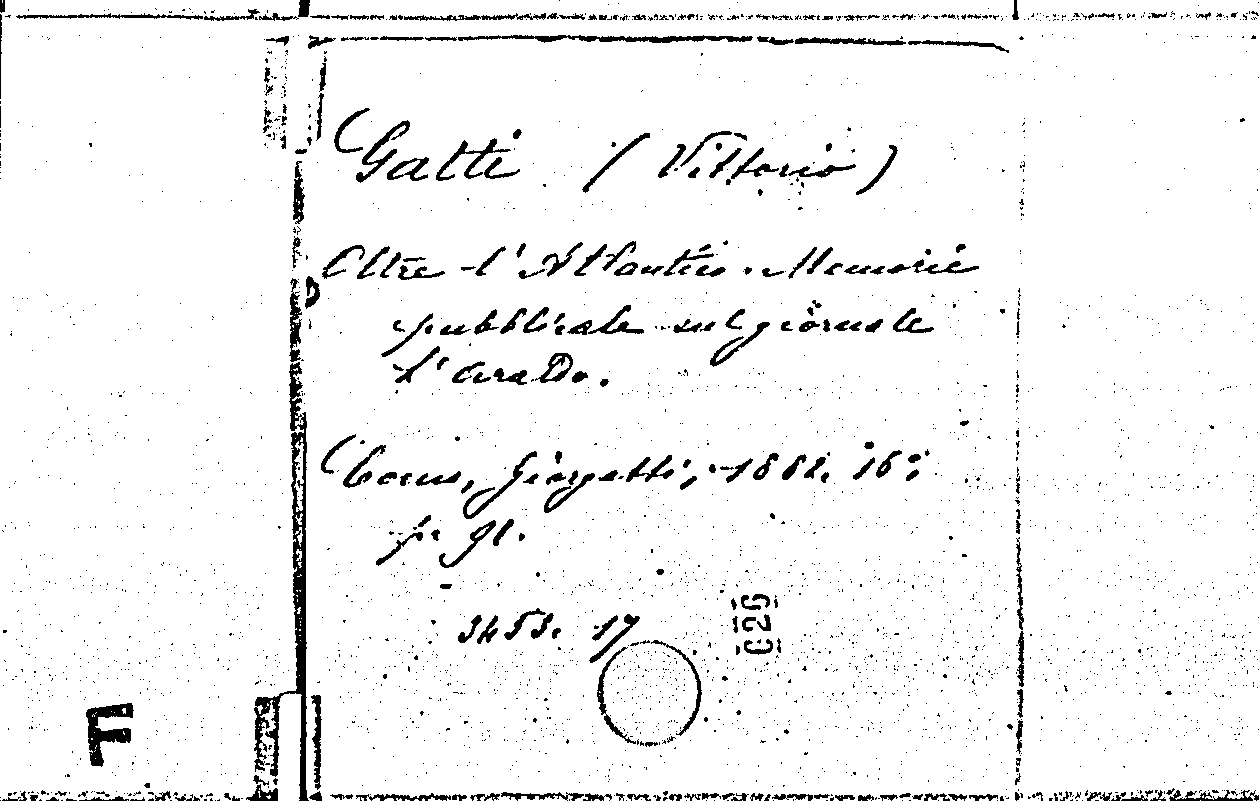 Gatti (Vittorio)
Oltre l'Atlantico. Memorie
pubblicate sul giornale
l'Araldo.
Como, Giorgetti, 1882. 16°;
p. 91.
3453. 17
C26
F